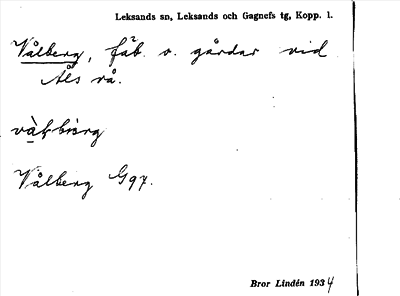 Leksands sn, Leksands och Gagnefs tg, Kopp. l.
Vålberg, fäb. o. gårdar vid
Åls rå.
Vålberg G97.
Bror Lindén 1934